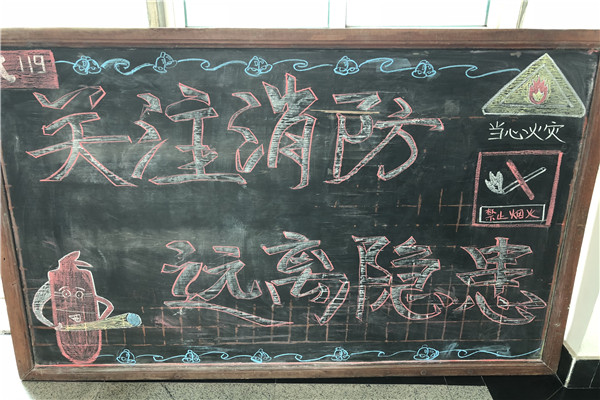 119
关注消防
当心火灾
禁止烟火
远离隐患